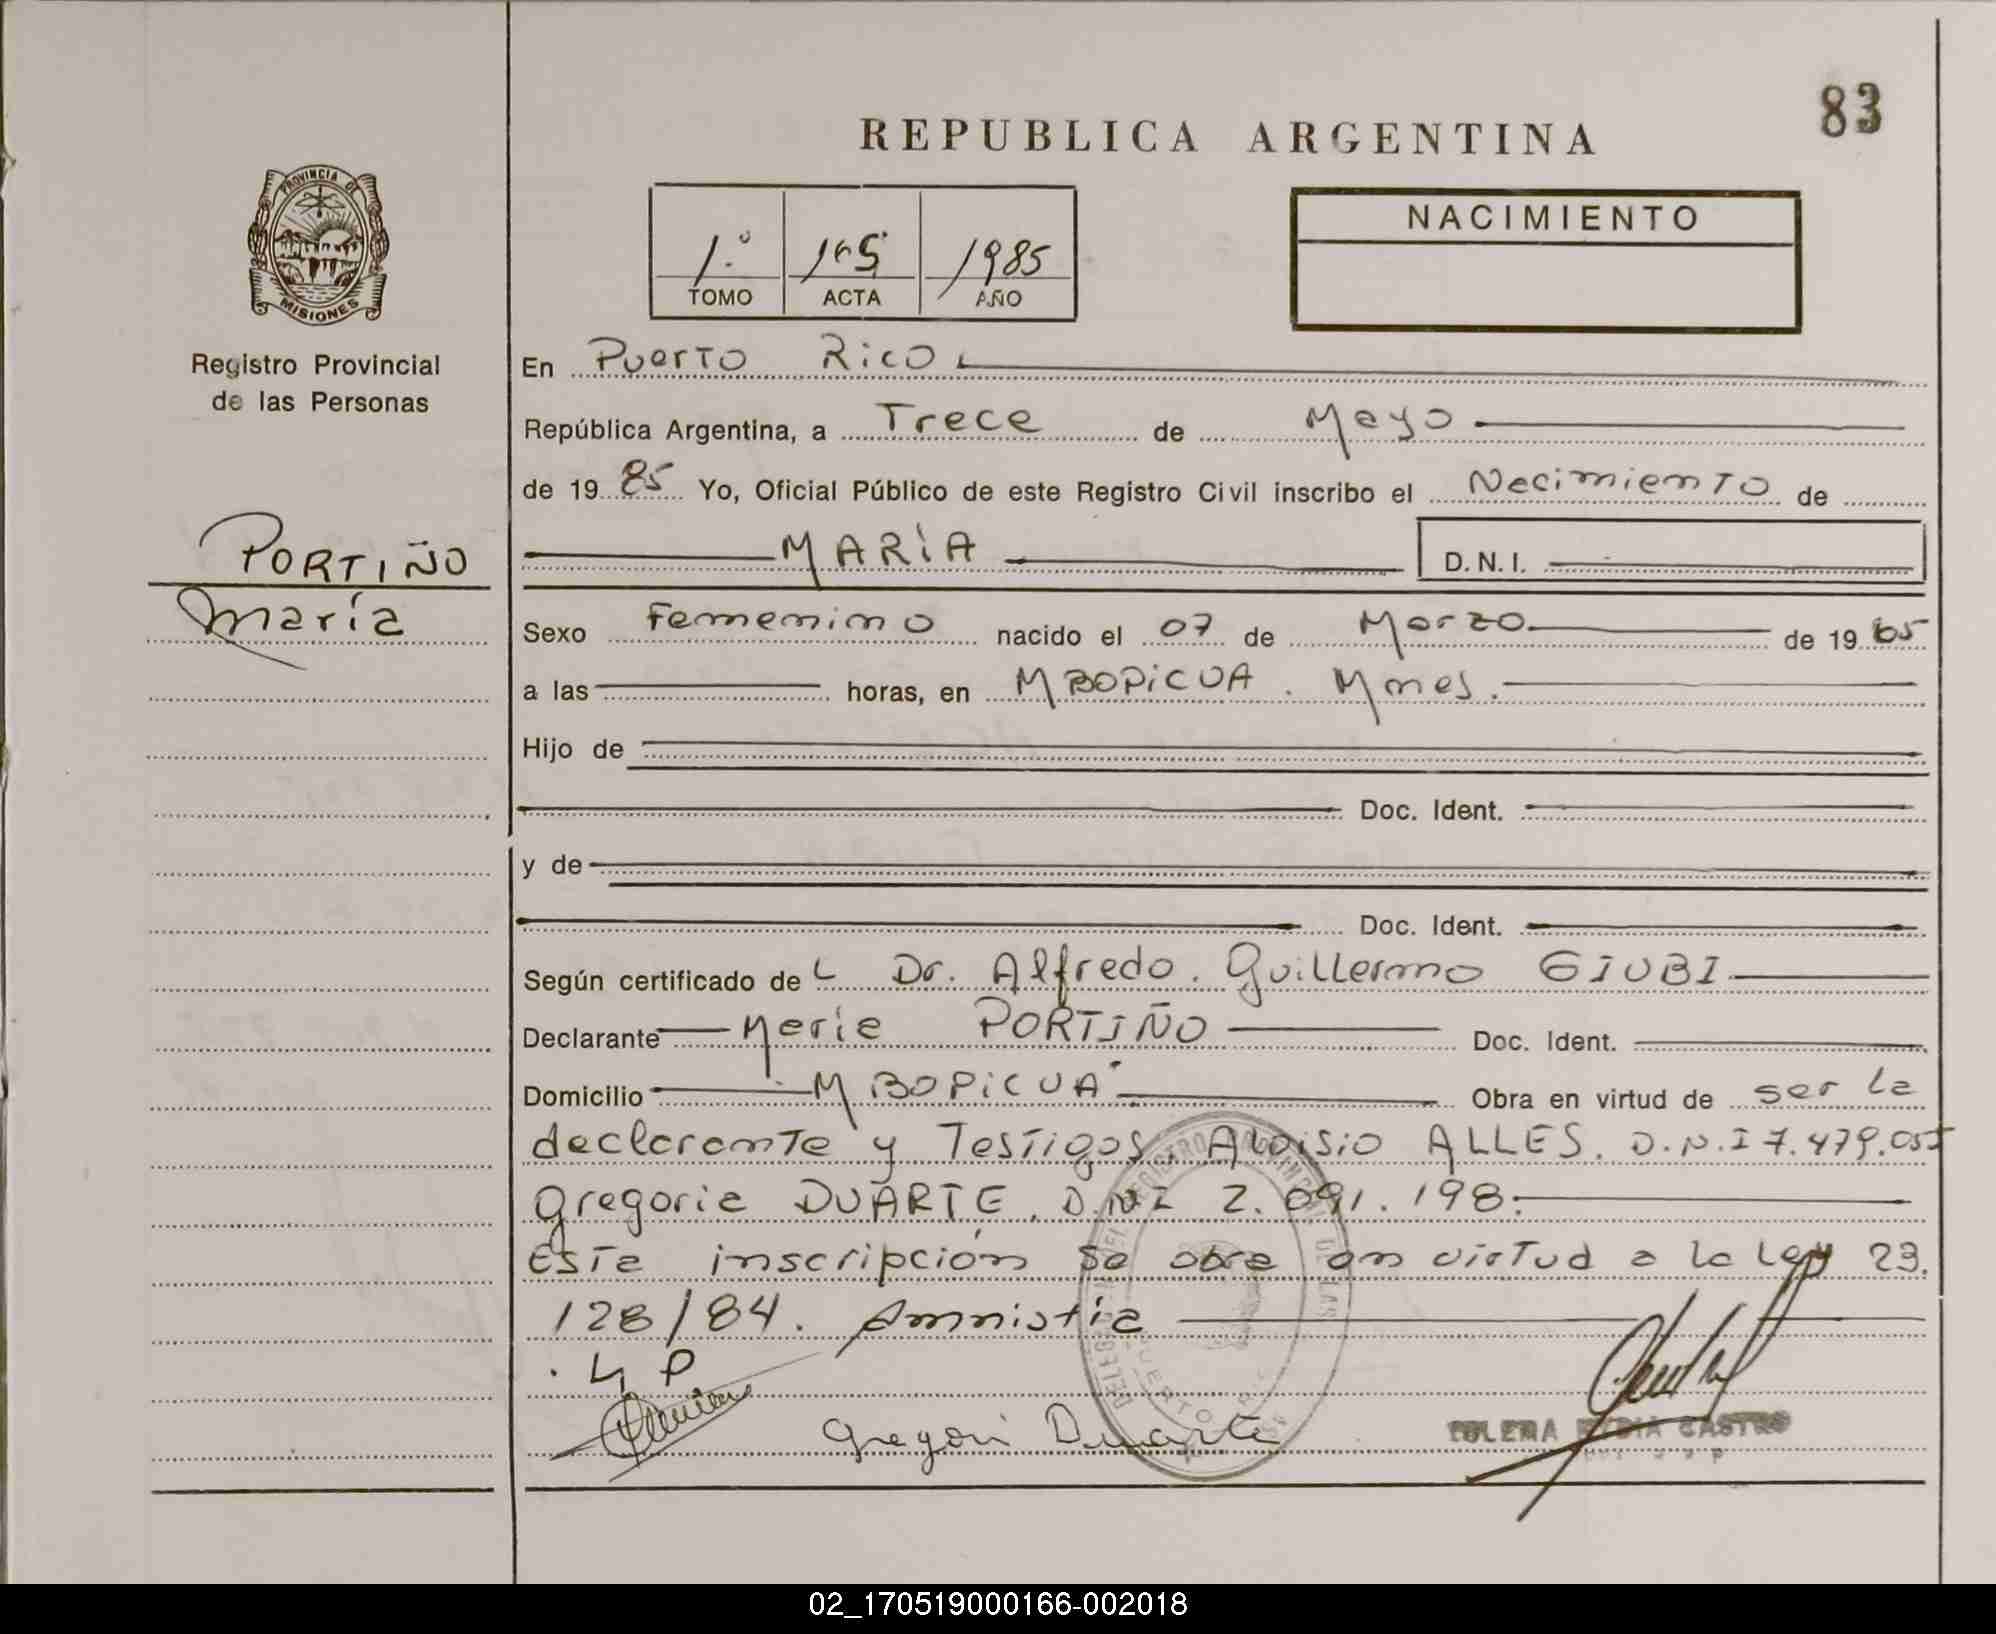 83
REPUBLICA ARGENTINA
PROVINCIA DE
MISIONES
Registro Provincial
de las Personas
1.º 165 1985
TOMO ACTA AÑO
NACIMIENTO
En Puerto Rico
República Argentina, a Trece de Mayo
de 1985 Yo, Oficial Público de este Registro Civil inscribo el Nacimiento de
PORTIÑO
María
MARÍA D.N.I.
Sexo Femenino nacido el 07 de Marzo de 1965
a las horas, en MBOPICUA. Mnes.
Hijo de
Doc. Ident.
y de
Doc. Ident.
Según certificado de L Dr. Alfredo. Guillermo GIUBI
Declarante Maria PORTIÑO Doc. Ident.
Domicilio MBOPICUÁ Obra en virtud de ser la
declarante y Testigos. Aloisio ALLES. D.N.I 7.479.055
Gregoria DUARTE. D.NI 2.091.198.
Esta inscripción se abre en virtud a la Ley 23.
128/84. Amnistía
. L P
Gregori Duarte
CASTRO
02_170519000166-002018